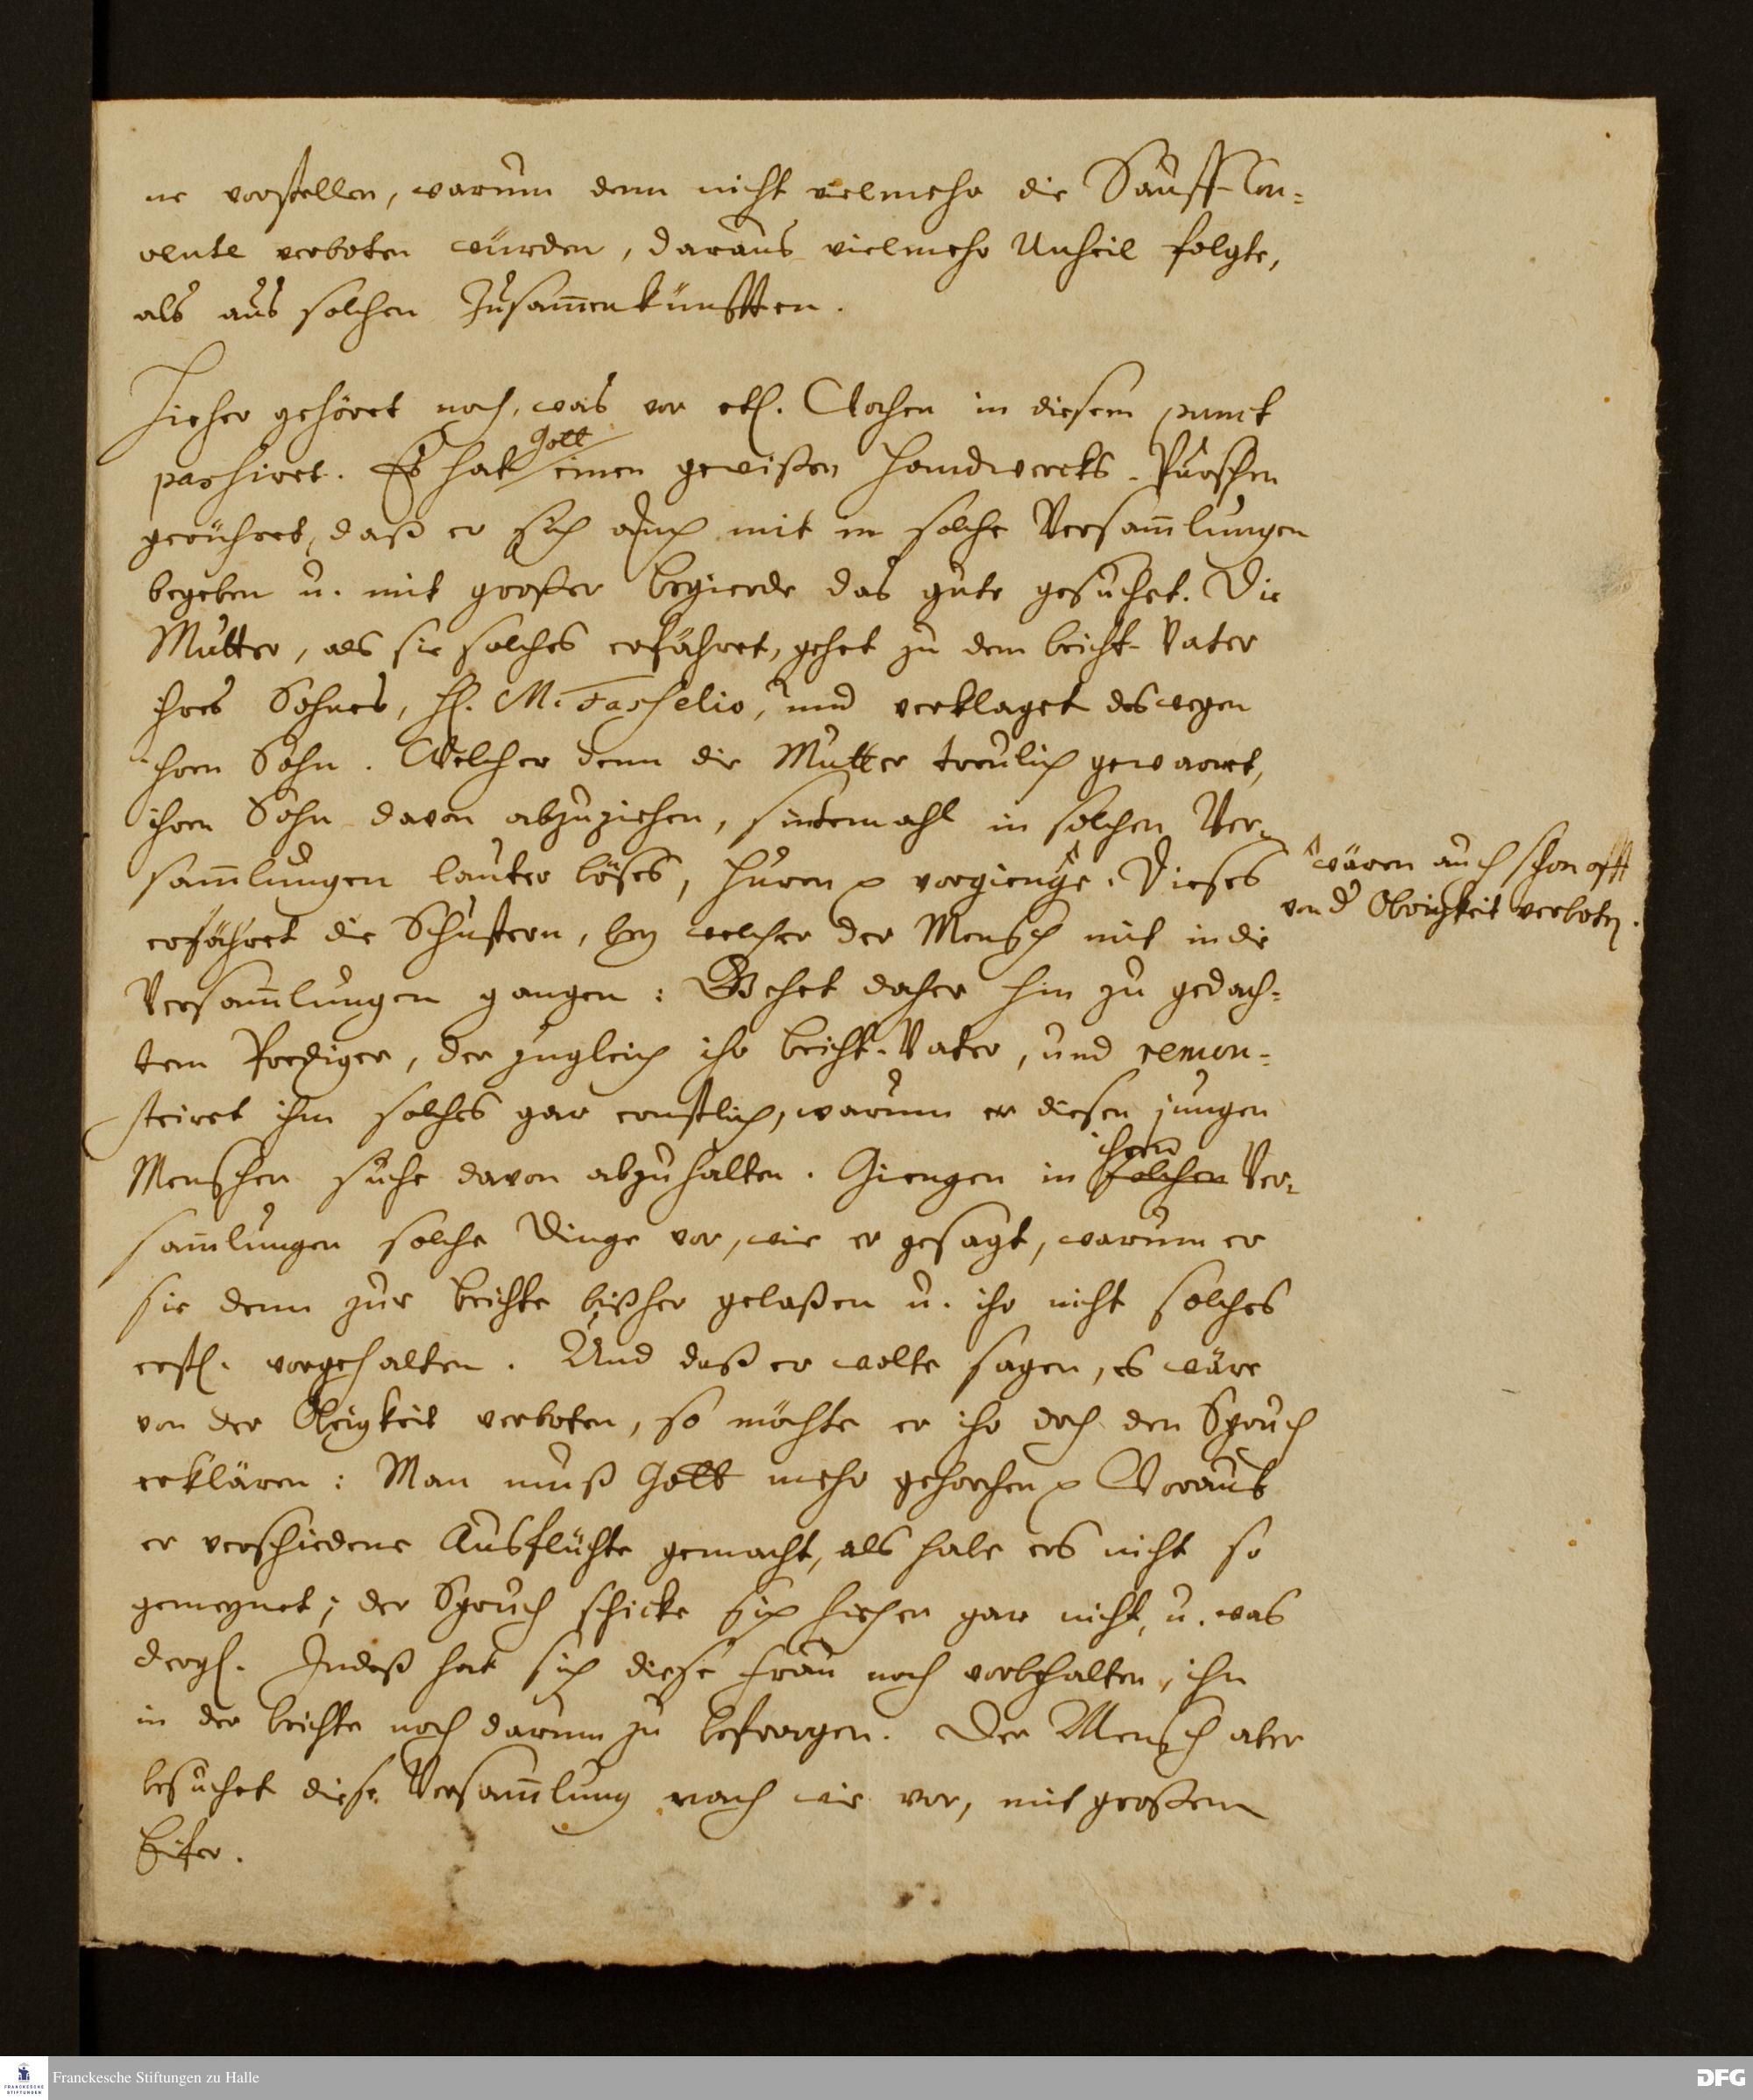 ne vorstellen, warum denn nicht vielmehr die Sauff-Con-
vente verboten würden, daraus vielmehr Unheil folgte,
als aus solchen Zusam̅enkünfften.
Hieher gehöret noch, was vor etl. Wochen in diesem punct
passiret. Es hat Gott einen gewißen Handwercks-Purschen
gerühret, daß er sich auch mit in solche Versam̅lungen
begeben u. mit großer begierde das gute gesuchet. Die
Mutter, als sie solches erfähret, gehet zu dem beicht-Vater
ihres Sohnes, H. M. , und verklaget deswegen
ihren Sohn. Welcher denn die Mutter treulich gewarnet,
ihren Sohn davon abzuziehen, sintemahl in solchen Ver-
sam̅lungen lauter böses, Huren p vorgienge. Dieses
wären auch schon offt
von d Obrigkeit verboten.
erfähret die Schustern, bey welcher der Mensch mit in die
Versam̅lungen gangen: Gehet daher hin zu gedach-
tem Prediger, der zugleich ihr beicht-Vater, und remon-
striret ihm solches gar ernstlich, warum er diesen jungen
Menschen suche davon abzuhalten. Giengen in solchen ihren Ver-
sam̅lungen solche Dinge vor, wie er gesagt, warum er
sie denn zur beichte bißher gelaßen u. ihr nicht solches
erstl. vorgehalten. Und daß er wolte sagen, es wäre
von der Obrigkeit verboten, so möchte er ihr doch den Spruch
erklären: Man muß Gott mehr gehorchen p Worauf
er verschiedene Ausflüchte gemacht, als habe ers nicht so
gemeynet; der Spruch schicke sich hieher gar nicht, u. was
dergl. Indeß hat sich diese Frau noch vorbehalten, ihn
in der beichte noch darum zu befragen. Der Mensch aber
besuchet diese Versam̅lung nach wie vor, mit großem
Eifer.
Franckesche Stiftungen zu Halle
FRANCKESCHE STIFTUNGEN
DFG